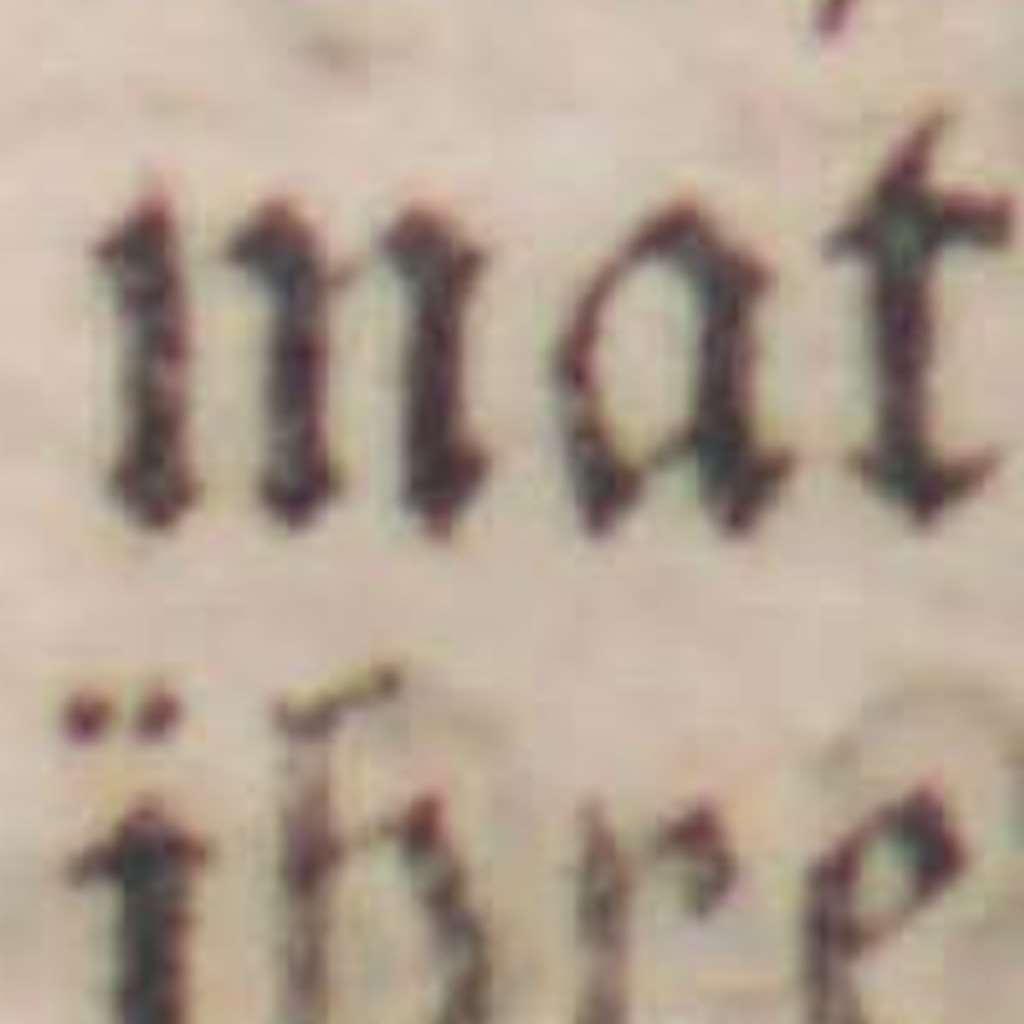 mat
ïhre